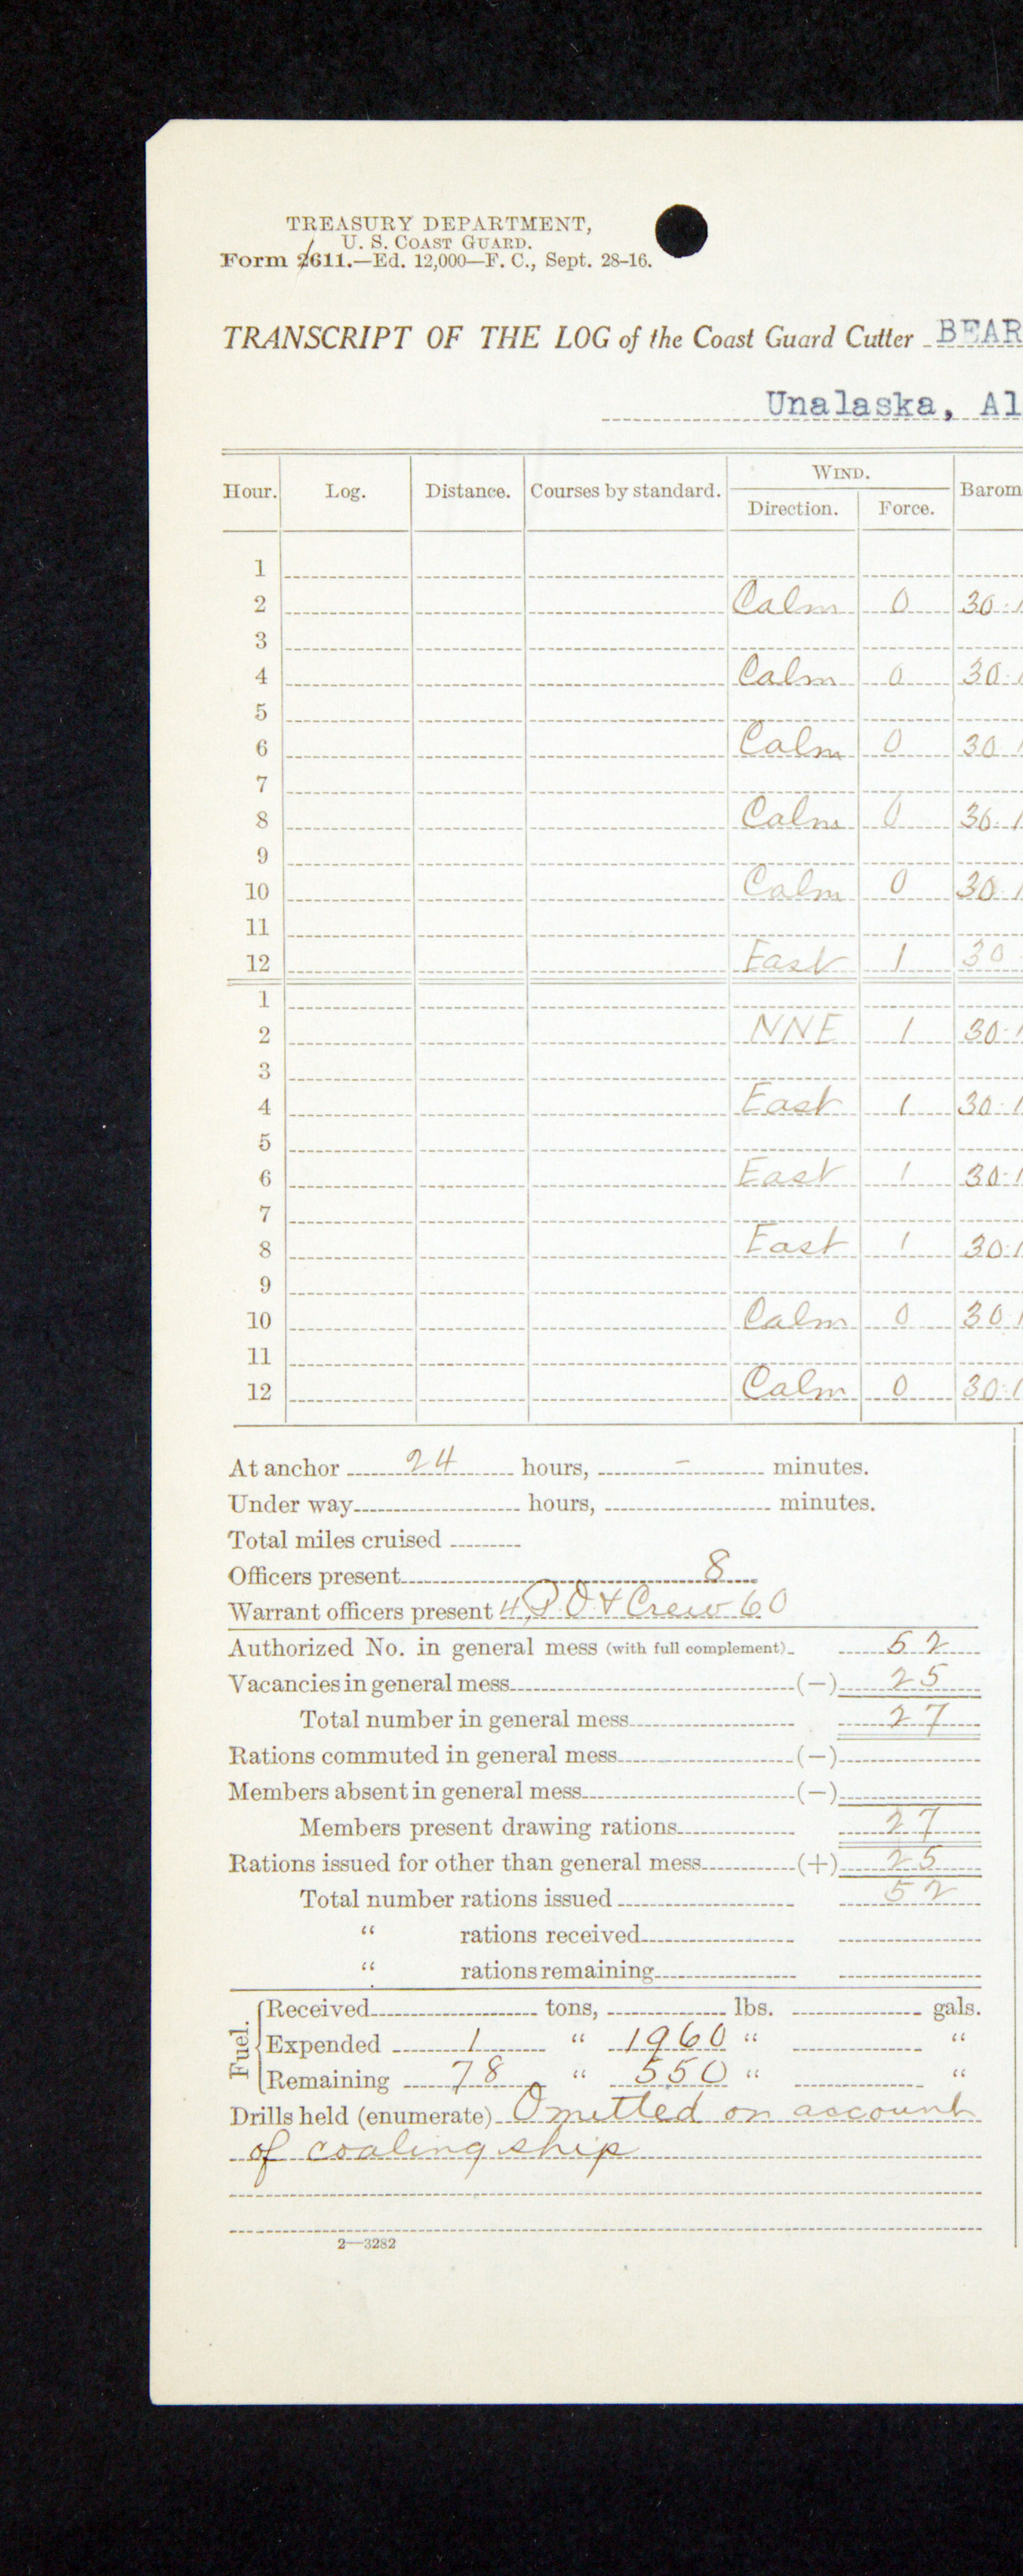 TREASURY DEPARTMENT,
U. S. COAST GUARD.
Form 2611.—Ed. 12,000—F. C., Sept. 28–16.
TRANSCRIPT OF THE LOG of the Coast Guard Cutter BEAR
Unalaska, Al
Hour. Log. Distance. Courses by standard. WIND. Direction. Force. Barom
1
2 Calm 0 30.1
3
4 Calm 0 30.1
5
6 Calm 0 30 1
7
8 Calm 0 30.1
9
10 Calm 0 30 1
11
12 East 1 30
1
2 NNE 1 30.1
3
4 East 1 30.1
5
6 East 1 30.1
7
8 East 1 30.1
9
10 Calm 0 30 1
11
12 Calm 0 30.1
At anchor 24 hours, – minutes.
Under way hours, minutes.
Total miles cruised
Officers present 8
Warrant officers present 4, P.O. & Crew 60
Authorized No. in general mess (with full complement) 52
Vacancies in general mess (—) 25
Total number in general mess 27
Rations commuted in general mess (—)
Members absent in general mess (—)
Members present drawing rations 27
Rations issued for other than general mess (+) 25
Total number rations issued 52
“ rations received
“ rations remaining
Fuel. Received tons, lbs. gals.
Expended 1 “ 1960 “ “
Remaining 78 “ 550 “ “
Drills held (enumerate) Omitted on account
of coaling ship
2—3282